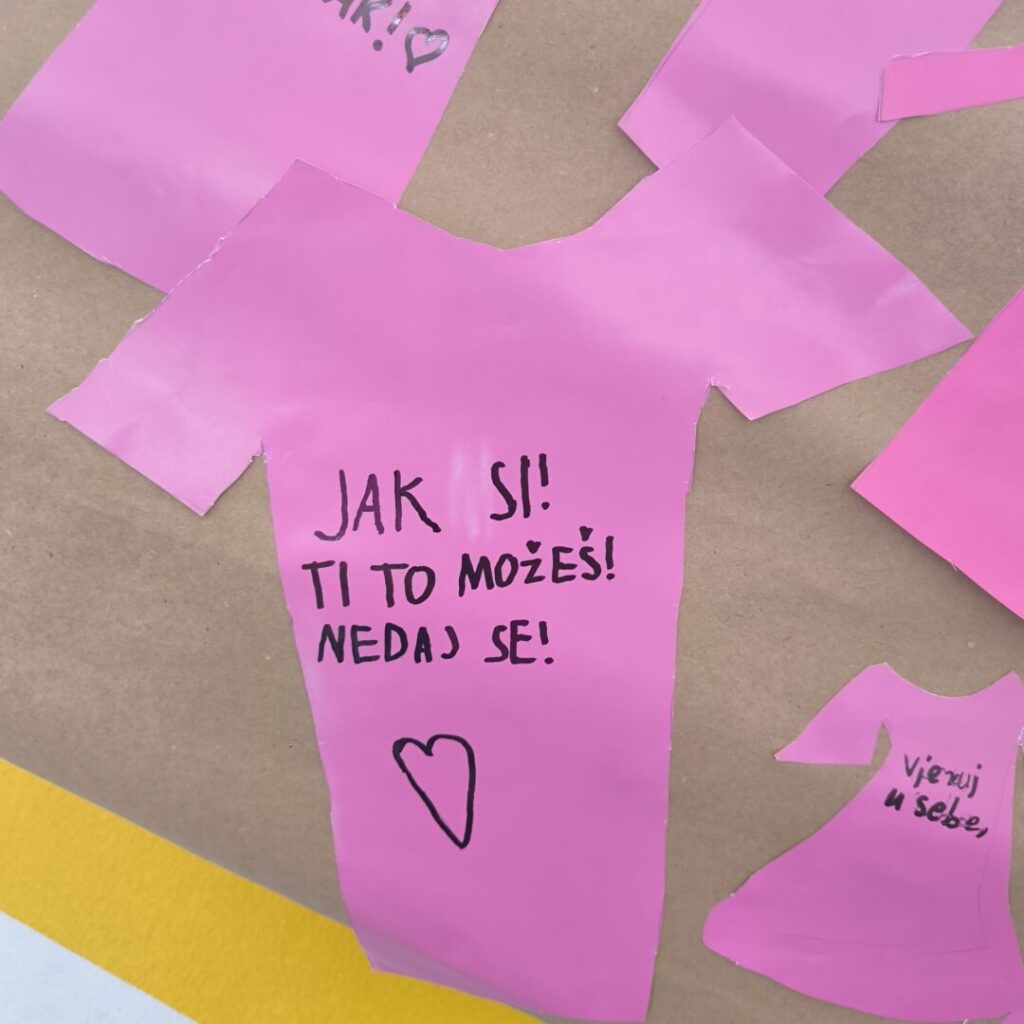 JAK SI!
TI TO MOŽEŠ!
NEDAJ SE!
Vjeruj
u sebe,